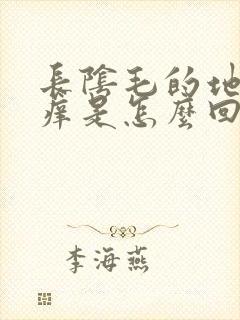 長陰毛的地
痒是怎麼回
李海燕